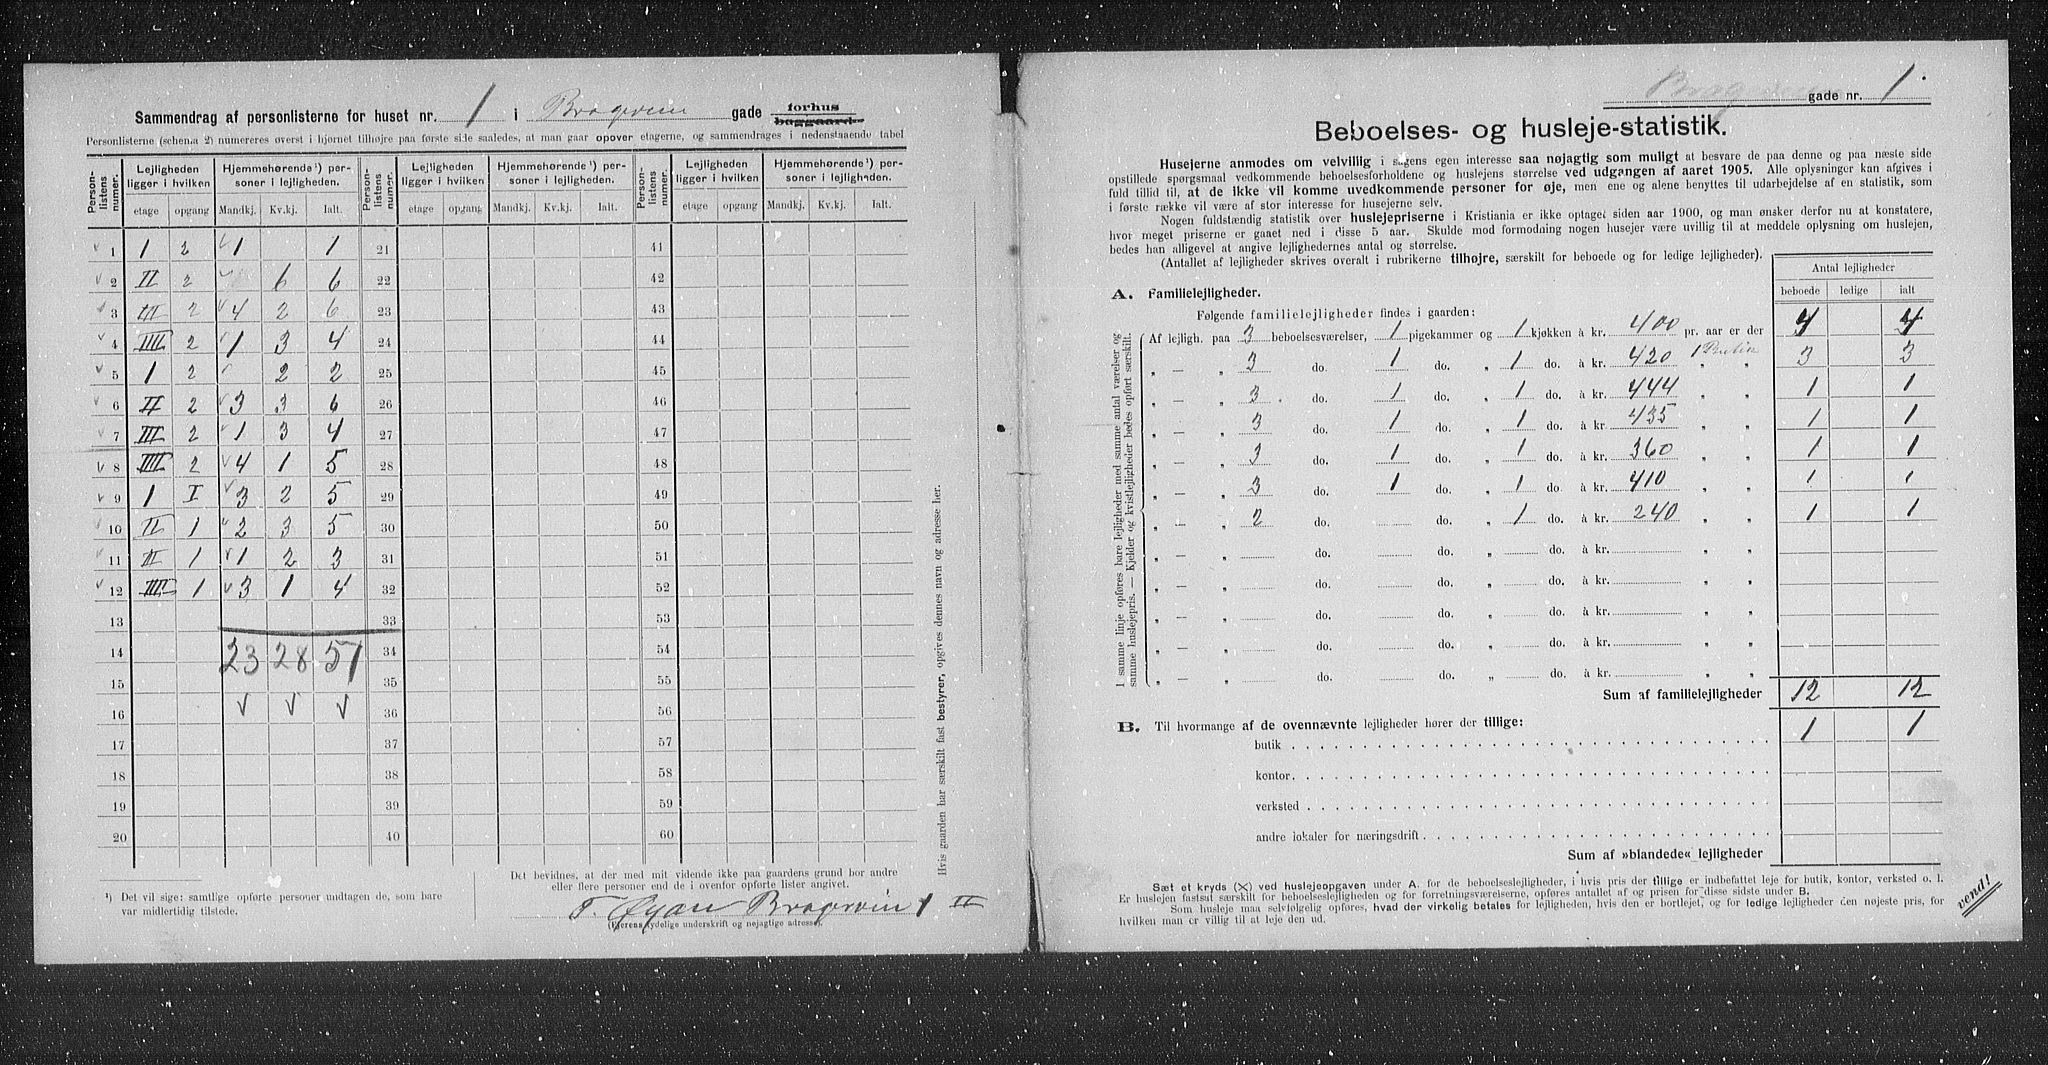 Sammendrag af personlisterne for huset nr. 1 i Bragevein gade forhus
baggaard.
Personlisterne (schema 2) numereres øverst i hjørnet tilhøjre paa første side saaledes, at man gaar opover etagerne, og sammendrages i nedenstaaende tabel
Person-listens numer. | Lejligheden ligger i hvilken | Hjemmehørende ¹) personer i lejligheden. | Person-listens numer. | Lejligheden ligger i hvilken | Hjemmehørende ¹) personer i lejligheden. | Person-listens numer. | Lejligheden ligger i hvilken | Hjemmehørende ¹) personer i lejligheden.
etage opgang Mandkj. Kv.kj. Ialt. etage opgang Mandkj. Kv.kj. Ialt. etage opgang Mandkj. Kv.kj. Ialt.
v 1 1 2 v 1 1 21 41
v 2 II 2 v 6 6 22 42
v 3 III 2 v 4 2 6 23 43
v 4 IIII 2 v 1 3 4 24 44
v 5 1 2 v 2 2 25 45
v 6 II 2 v 3 3 6 26 46
v 7 III 2 v 1 3 4 27 47
v 8 IIII 2 v 4 1 5 28 48
v 9 1 I v 3 2 5 29 49
v 10 II 1 v 2 3 5 30 50
v 11 III 1 v 1 2 3 31 51
v 12 IIII 1 v 3 1 4 32 52
13 33 53
14 23 28 51 34 54
15 35 55
16 v v v 36 56
17 37 57
18 38 58
19 39 59
20 40 60
¹) Det vil sige: samtlige opførte personer undtagen de, som bare
var midlertidig tilstede.
Det bevidnes, at der med mit vidende ikke paa gaardens grund bor andre
eller flere personer end de i ovenfor opførte lister angivet.
T. Øyan Bragevein 1 II
(Ejerens tydelige underskrift og nøjagtige adresse).
Hvis gaarden har særskilt fast bestyrer, opgives dennes navn og adresse her.
Bragevein gade nr. 1.
Beboelses- og husleje-statistik.
Husejerne anmodes om velvillig i sagens egen interesse saa nøjagtig som muligt at besvare de paa denne og paa næste side
opstillede spørgsmaal vedkommende beboelsesforholdene og huslejens størrelse ved udgangen af aaret 1905. Alle oplysninger kan afgives i
fuld tillid til, at de ikke vil komme uvedkommende personer for øje, men ene og alene benyttes til udarbejdelse af en statistik, som
i første række vil være af stor interesse for husejerne selv.
Nogen fuldstændig statistik over huslejepriserne i Kristiania er ikke optaget siden aar 1900, og man ønsker derfor nu at konstatere,
hvor meget priserne er gaaet ned i disse 5 aar. Skulde mod formodning nogen husejer være uvillig til at meddele oplysning om huslejen,
bedes han alligevel at angive lejlighedernes antal og størrelse.
(Antallet af lejligheder skrives overalt i rubrikerne tilhøjre, særskilt for beboede og for ledige lejligheder).
Antal lejligheder
beboede ledige ialt
A. Familielejligheder.
Følgende familielejligheder findes i gaarden:
I samme linje opføres bare lejligheder med samme antal værelser og
samme huslejepris. — Kjelder og kvistlejligheder bedes opført særskilt.
Af lejligh. paa 3 beboelsesværelser, 1 pigekammer og 1 kjøkken à kr. 400 pr. aar er der 4 4
„ — „ 3 do. 1 do. „ 1 do. à kr. 420 „ „ 3 3
„ — „ 3 do. 1 do. „ 1 do. à kr. 444 „ „ 1 1
„ — „ 3 do. 1 do. „ 1 do. à kr. 435 „ „ 1 1
„ — „ 3 do. 1 do. „ 1 do. à kr. 360 „ „ 1 1
„ — „ 3 do. 1 do. „ 1 do. à kr. 410 „ „ 1 1
„ — „ 2 do. do. „ 1 do. à kr. 240 „ „ 1 1
„ — „ do. do. „ do. à kr. „ „
„ — „ do. do. „ do. à kr. „ „
„ — „ do. do. „ do. à kr. „ „
„ — „ do. do. „ do. à kr. „ „
„ — „ do. do. „ do. à kr. „ „
Sum af familielejligheder 12 12
B. Til hvormange af de ovennævnte lejligheder hører der tillige:
butik 1 1
kontor
verksted
andre lokaler for næringsdrift
Sum af »blandede« lejligheder
Sæt et kryds (X) ved huslejeopgaven under A. for de beboelseslejligheder, i hvis pris der tillige er indbefattet leje for butik, kontor, verksted o. l.
Er huslejen fastsat særskilt for beboelseslejligheden og for forretningsværelserne, opføres antallet af og prisen for disse sidste under B.
Som husleje maa selvfølgelig opføres, hvad der virkelig betales for lejligheden, hvis den er bortlejet, og for ledige lejligheder den nøjeste pris, for
hvilken man er villig til at leje den ud.
vend!